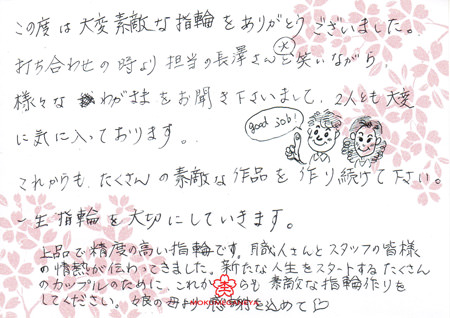 この度は大変素敵な指輪をありがとうございました。
打ち合わせの時より担当の長澤さんと笑いながら、
様々なわがままをお聞き下さいまして、2人とも大変
に気に入っております。
good job!
これからも、たくさんの素敵な作品を作り続けて下さい。
一生指輪を大切にしていきます。
上品で精度の高い指輪です。職人さんとスタッフの皆様
の情熱が伝わってきました。新たな人生をスタートするたくさん
のカップルのために、これからも素敵な指輪作りを
してください。娘の母より感謝を込めて